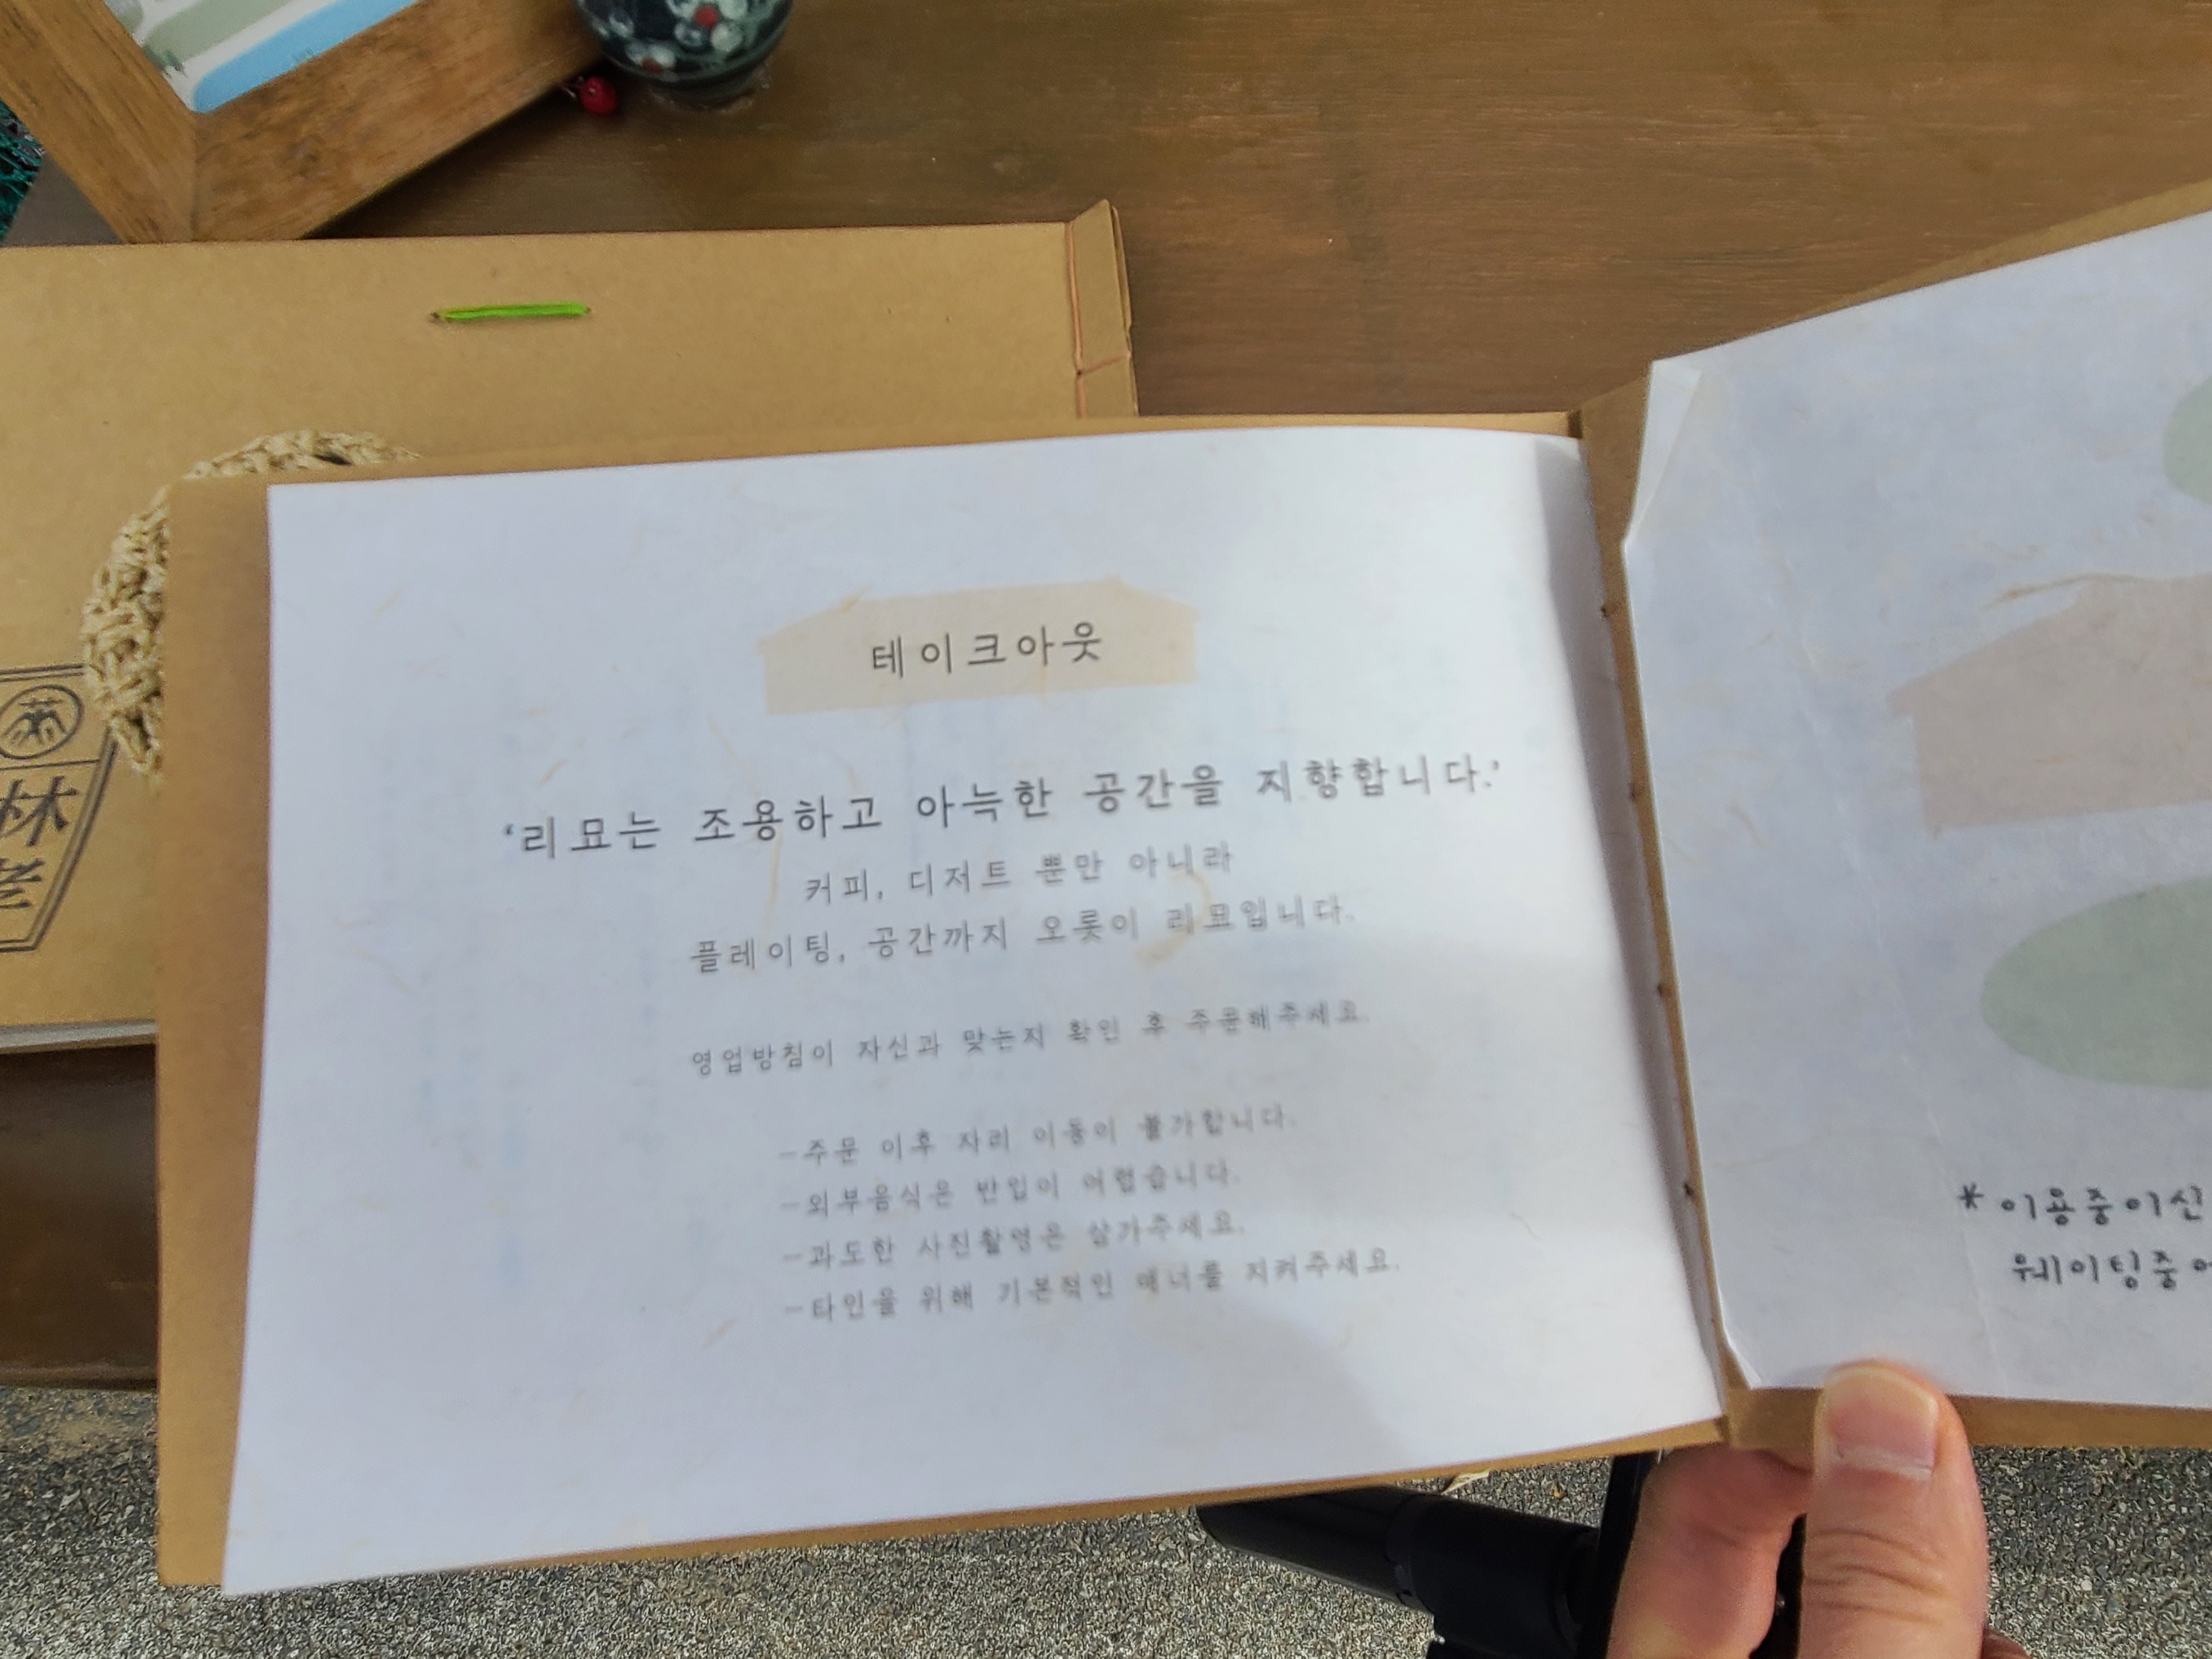 테이크아웃
‘리묘는 조용하고 아늑한 공간을 지향합니다.’
커피, 디저트 뿐만 아니라
플레이팅, 공간까지 오롯이 리묘입니다.
영업방침이 자신과 맞는지 확인 후 주문해주세요.
-주문 이후 자리 이동이 불가합니다.
-외부음식은 반입이 어렵습니다.
-과도한 사진촬영은 삼가주세요.
-타인을 위해 기본적인 매너를 지켜주세요.
* 이용중이신
웨이팅중
林